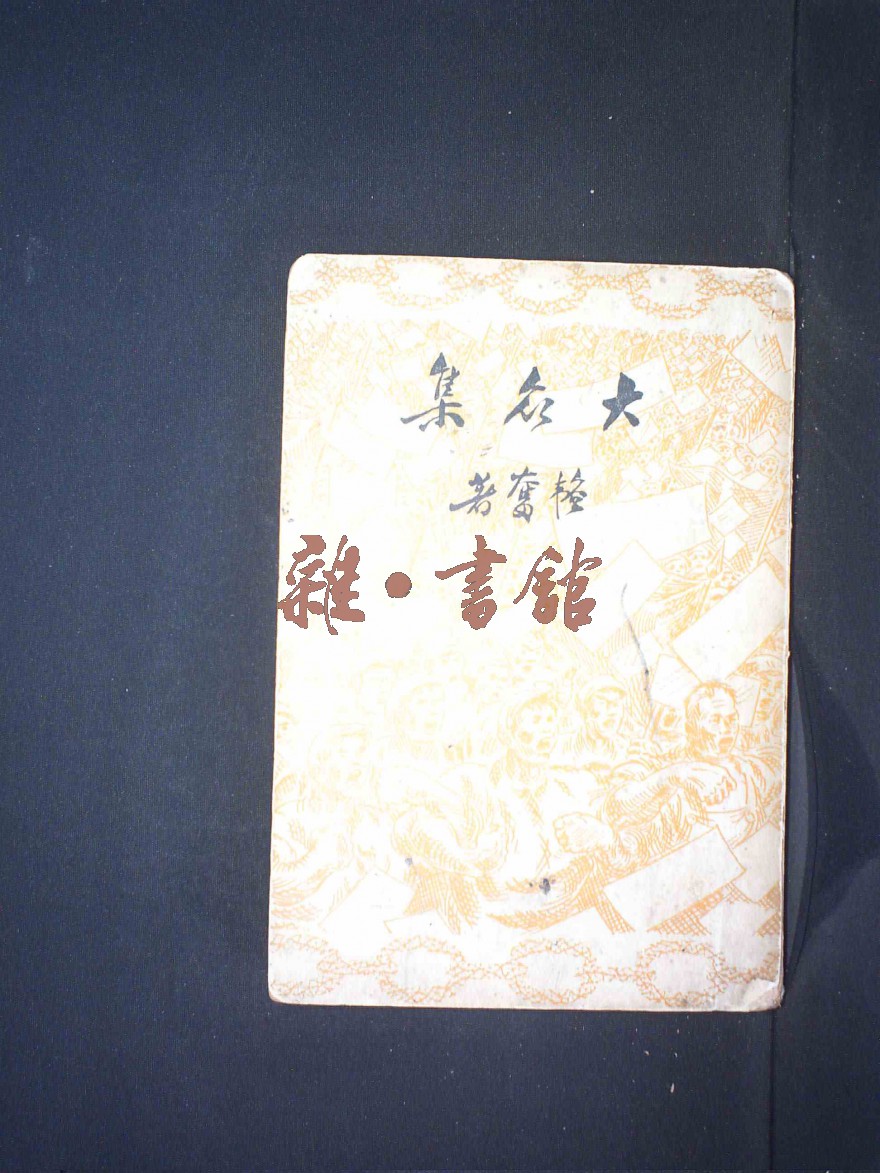 大众集
韬奮著
雜·書館